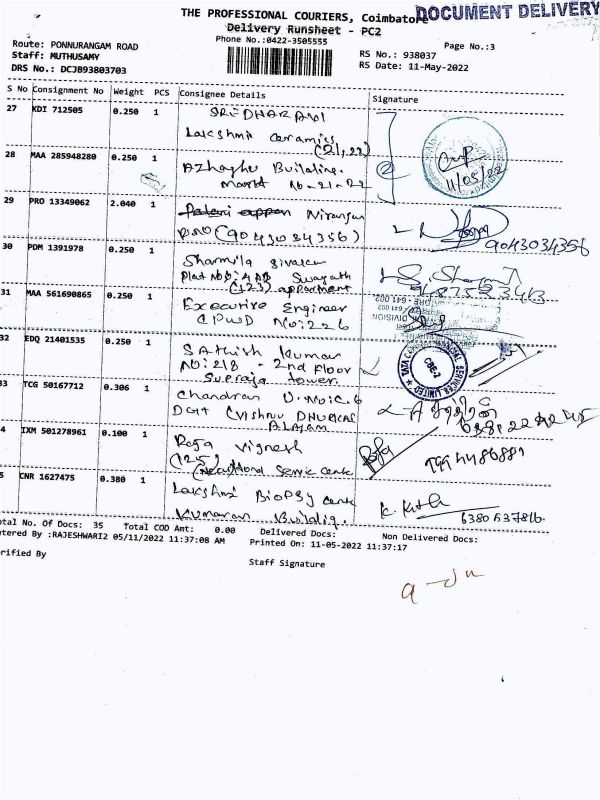 DOCUMENT DELIVERY
THE PROFESSIONAL COURIERS, Coimbatore
Delivery Runsheet - PC2
Phone No.:0422-3505555
Page No.:3
Route: PONNURANGAM ROAD
Staff: MUTHUSAMY
DRS No.: DCJB93803703
RS No.: 938037
RS Date: 11-May-2022
S No Consignment No Weight PCS Consignee Details Signature
27 KDI 712505 0.250 1 SRIDHAR AVI
Lakshmi Ceramics
(21,22)
28 MAA 285948280 0.250 1 AZhaghu Building.
Market No-21-22
2
11/05/22
29 PRO 13349062 2.040 1 Palani appan Niranjan
R.NO (9043034356)
9043034356
30 PDM 1391978 0.250 1 Sharmila Sivaram
Plat NO: 4AB Swagath
(123) appartment
31 MAA 561690865 0.250 1 Executive Engineer
CPWD No:226
32 EDQ 21401535 0.250 1 SAthish Kumar
No: 218 - 2nd Floor
Supraja tower.
TATA
CBE-2
SERVICES LIMITED
33 TCG 50167712 0.306 1 Chandran D.No:C.6
DGH (VISHNU DHURKAS
ALAYAM
4 IXM 501278961 0.100 1 Roja Vignesh
(125)
(Near Hond Servic Cente
Roja
7994486881
5 CNR 1627475 0.380 1 Lakshmi BioPSy cente
Kumaran Building.
6380637816
otal No. Of Docs: 35 Total COD Amt: 0.00 Delivered Docs: Non Delivered Docs:
ntered By :RAJESHWARI2 05/11/2022 11:37:08 AM Printed On: 11-05-2022 11:37:17
erified By
Staff Signature